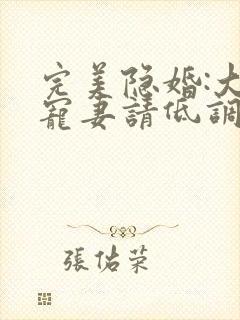 完美隐婚:大
寵妻請低調
張佑荣